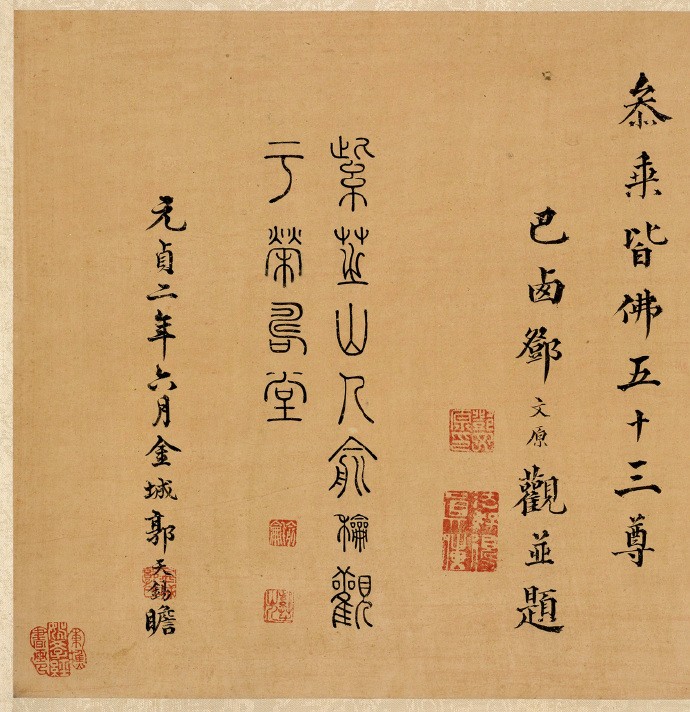 叅來皆佛五十三尊
巴西鄧文原觀並題
紫芝山人俞龢觀
于榮堂
元貞二年六月金城郭天錫瞻